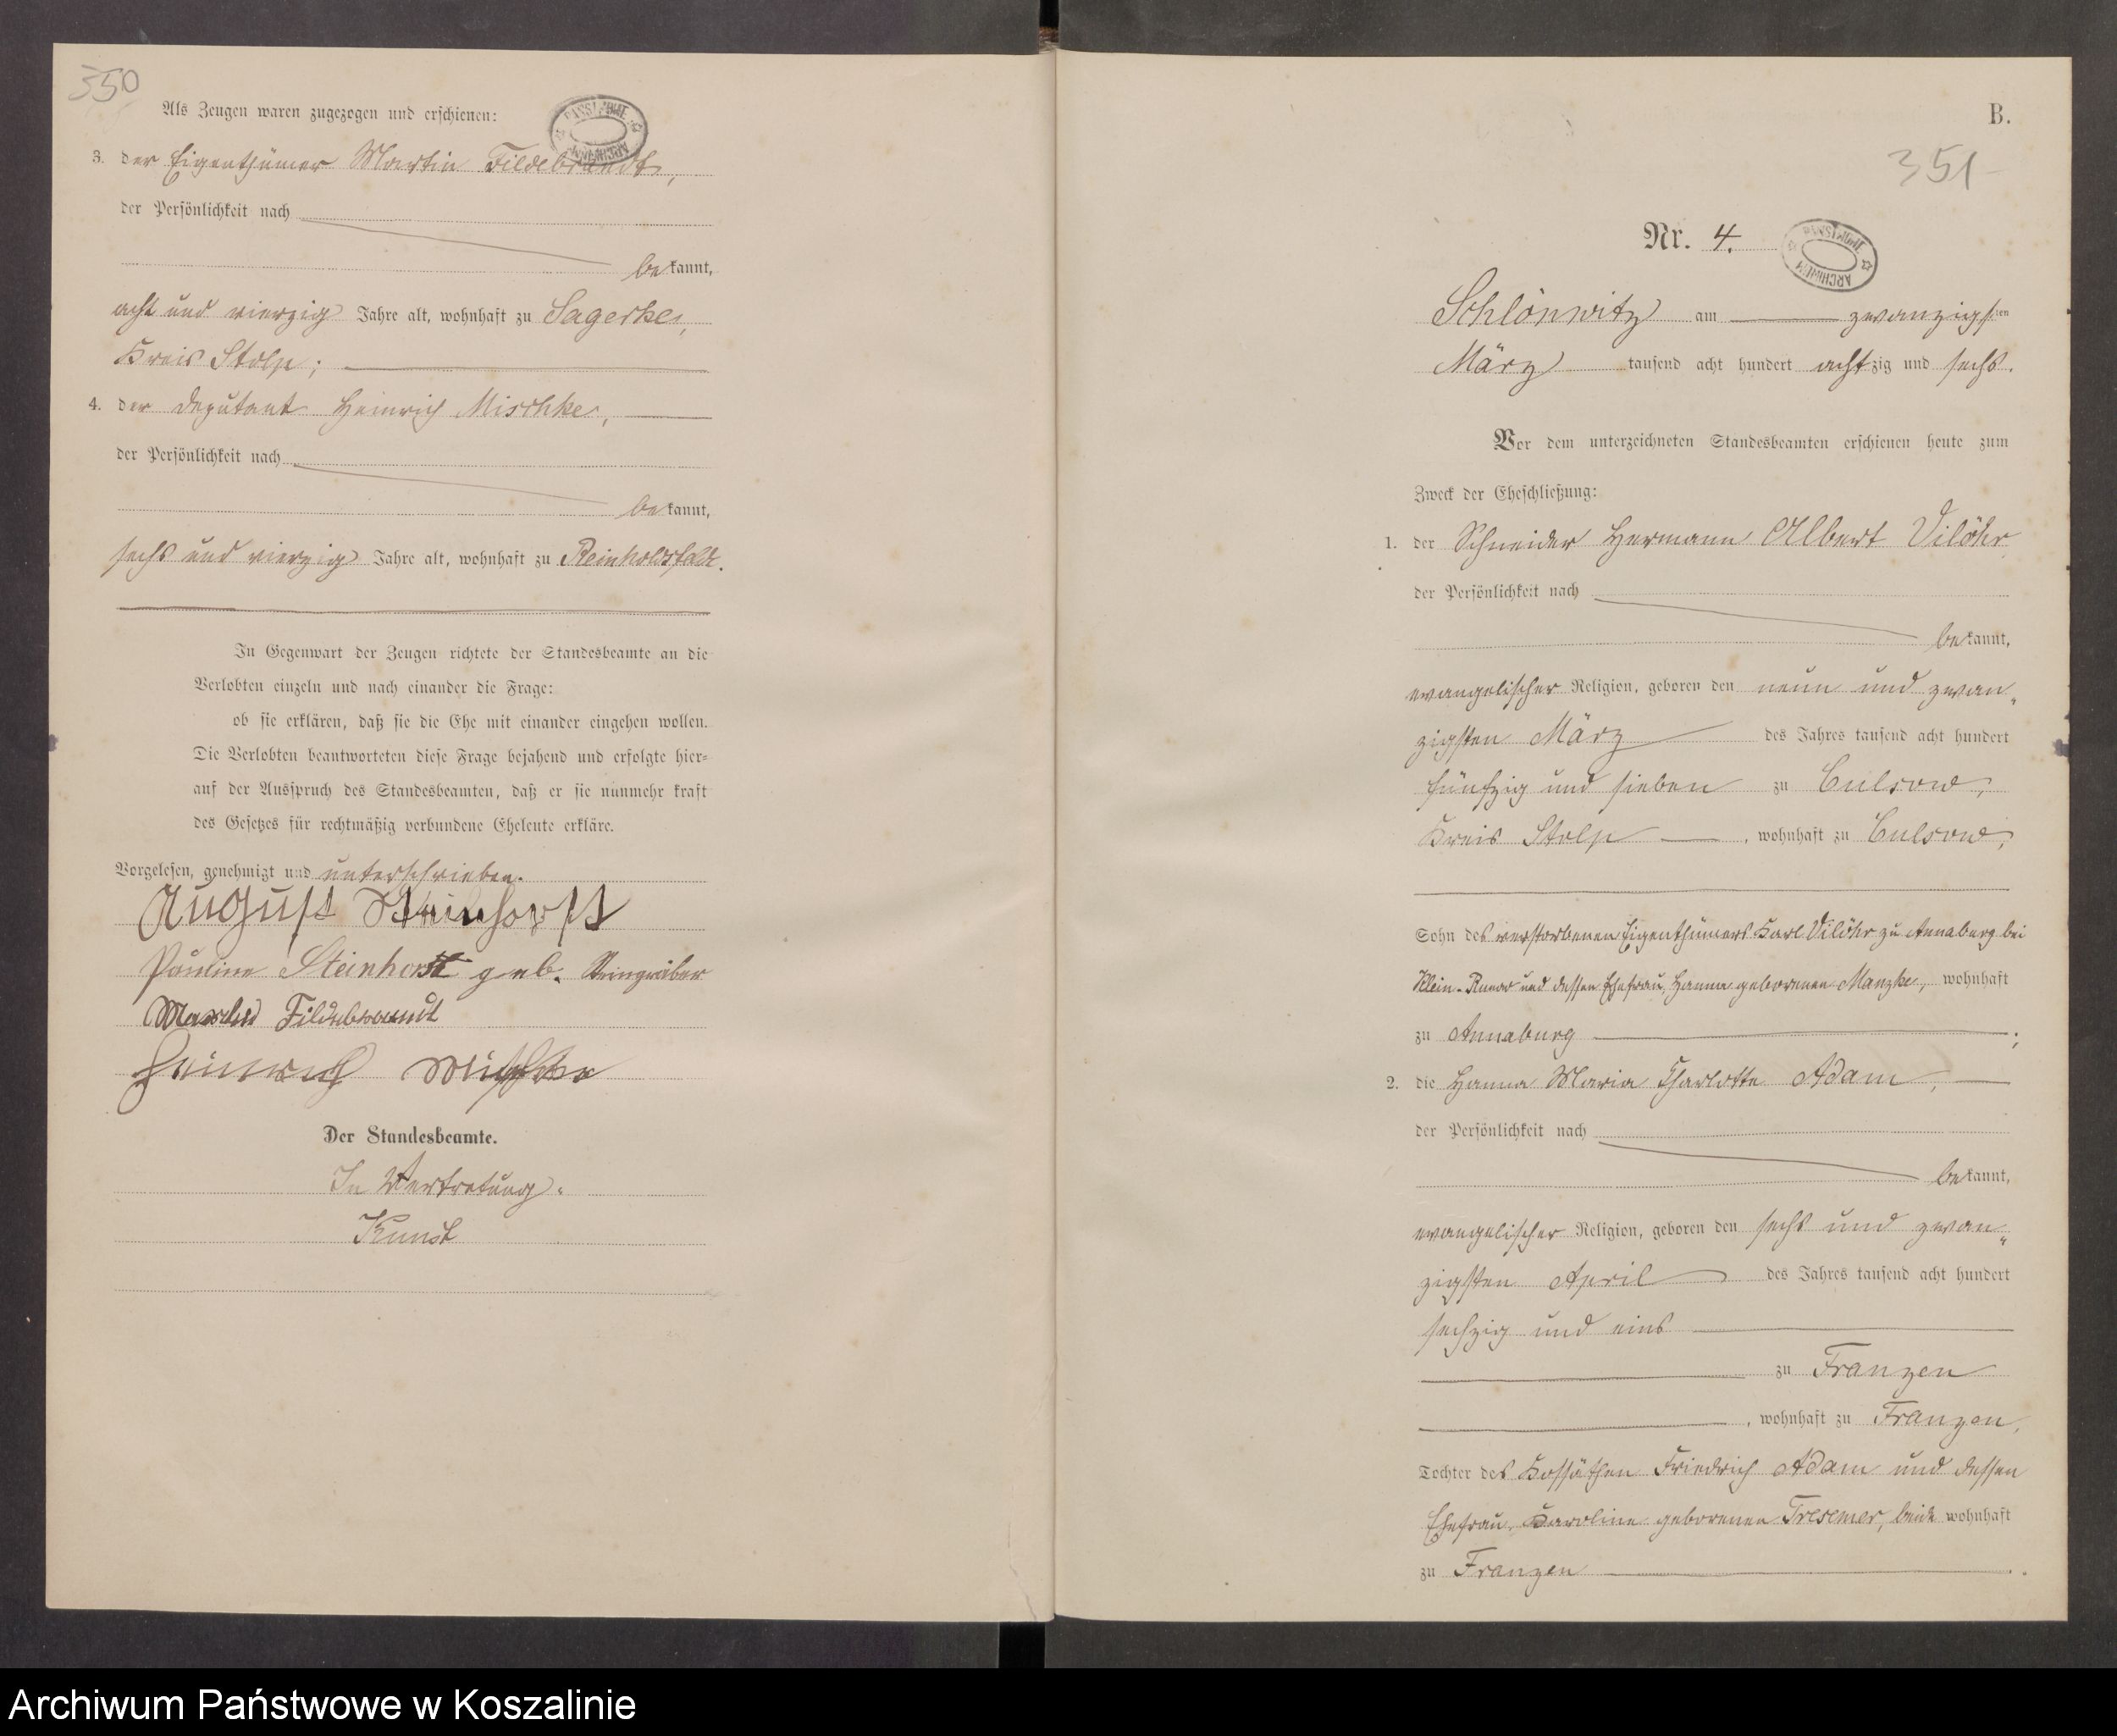 350
Als Zeugen waren zugezogen und erschienen:
3. der Eigenthümer Martin Fildebrandt,
der Persönlichkeit nach
bekannt,
acht und vierzig Jahre alt, wohnhaft zu Sagerke,
Kreis Stolp;
4. der Deputant Heinrich Mischke,
der Persönlichkeit nach
bekannt,
sechs und vierzig Jahre alt, wohnhaft zu Reinholdsfelde.
In Gegenwart der Zeugen richtete der Standesbeamte an die
Verlobten einzeln und nach einander die Frage:
ob sie erklären, daß sie die Ehe mit einander eingehen wollen.
Die Verlobten beantworteten diese Frage bejahend und erfolgte hier=
auf der Ausspruch des Standesbeamten, daß er sie nunmehr kraft
des Gesetzes für rechtmäßig verbundene Eheleute erkläre.
Vorgelesen, genehmigt und unterschrieben.
August Steinhorst
Pauline Steinhorst geb.
Fildebrandt
Heinrich Mischke
Der Standesbeamte.
In Vertretung.
Kunst
B.
351
Nr. 4.
PAŃSTWOWE ARCHIWUM
Schlönwitz am zwanzigsten
März tausend acht hundert achtzig und sechs.
Vor dem unterzeichneten Standesbeamten erschienen heute zum
Zweck der Eheschließung:
1. der Schneider Hermann Albert Vilöhr
der Persönlichkeit nach
bekannt,
evangelischer Religion, geboren den neun und zwan„
zigsten März des Jahres tausend acht hundert
fünfzig und sieben zu Culsow,
Kreis Stolp, wohnhaft zu Culsow,
Sohn des verstorbenen Eigenthümers Karl Vilöhr zu Annaberg bei
Klein- und dessen Ehefrau, Hanna geborenen Manzke, wohnhaft
zu Annaburg;
2. die Hanna Maria Charlotte Adam,
der Persönlichkeit nach
bekannt,
evangelischer Religion, geboren den sechs und zwan„
zigsten April des Jahres tausend acht hundert
sechzig und eins
zu Franzen
, wohnhaft zu Franzen,
Tochter des Kossäthen Friedrich Adam und dessen
Ehefrau, Karoline geborenen Tresemer, beide wohnhaft
zu Franzen.
Archiwum Państwowe w Koszalinie